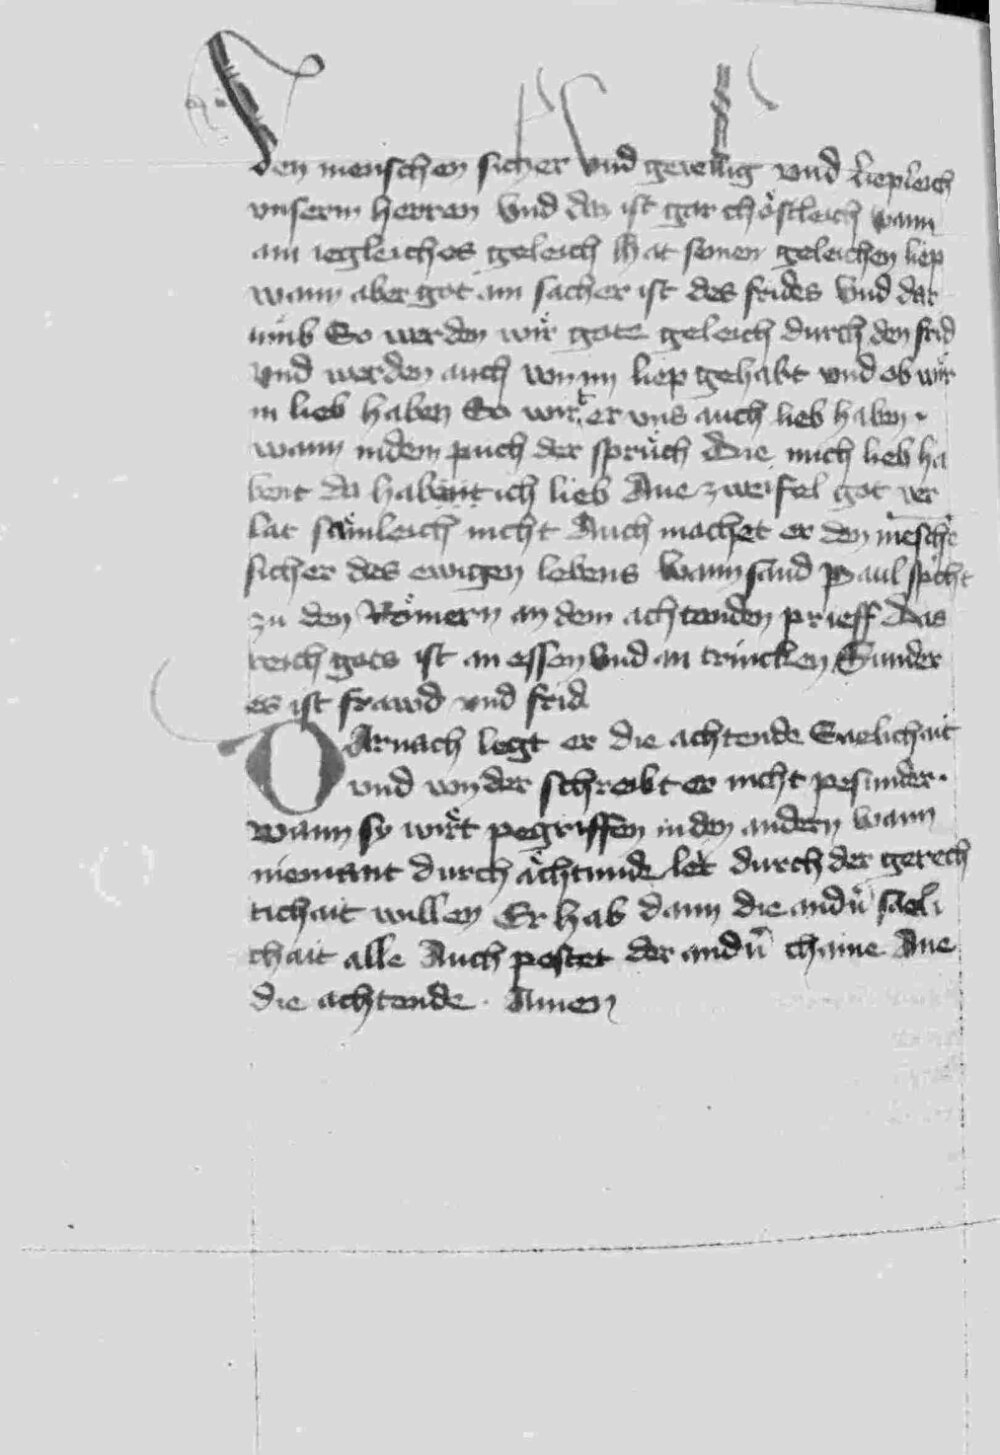 den menschen sicher vnd geuellig vnd liepleich
vnserm herren Vnd daz ist gar chöstleich wann
ain iegleiches geleich hat seinen geleichen liep
wann aber got ain sacher ist des frides Vnd dar
umb So werden wir gote geleich durch den frid
vnd werden auch von im liep gehabt vnd ob wir
in lieb haben So wirt er vns auch lieb haben.
wann in dem puch der sprüch Die mich lieb ha
bent da habent ich lieb Ane zweifel got ver
lat sämleich nicht Auch machet er den mēschē
sicher des ewigen lebens Wann sand Paul spricht
zu den Römern an dem achtenden prieff Das
reich gots ist an essen vnd an trincken Sunder
es ist frawd vnd frid
DArnach legt er die achtende Säelichait
vnd von der schreibt er nicht pesunder.
wann sy wirt pegriffen in den andern Wann
niemant durch ächtunde let durch der gerech
tichait willen Er hab dann die andn̄ saeli
chait alle Auch pestet der andn̄ chaine Ane
die achtende. Amen